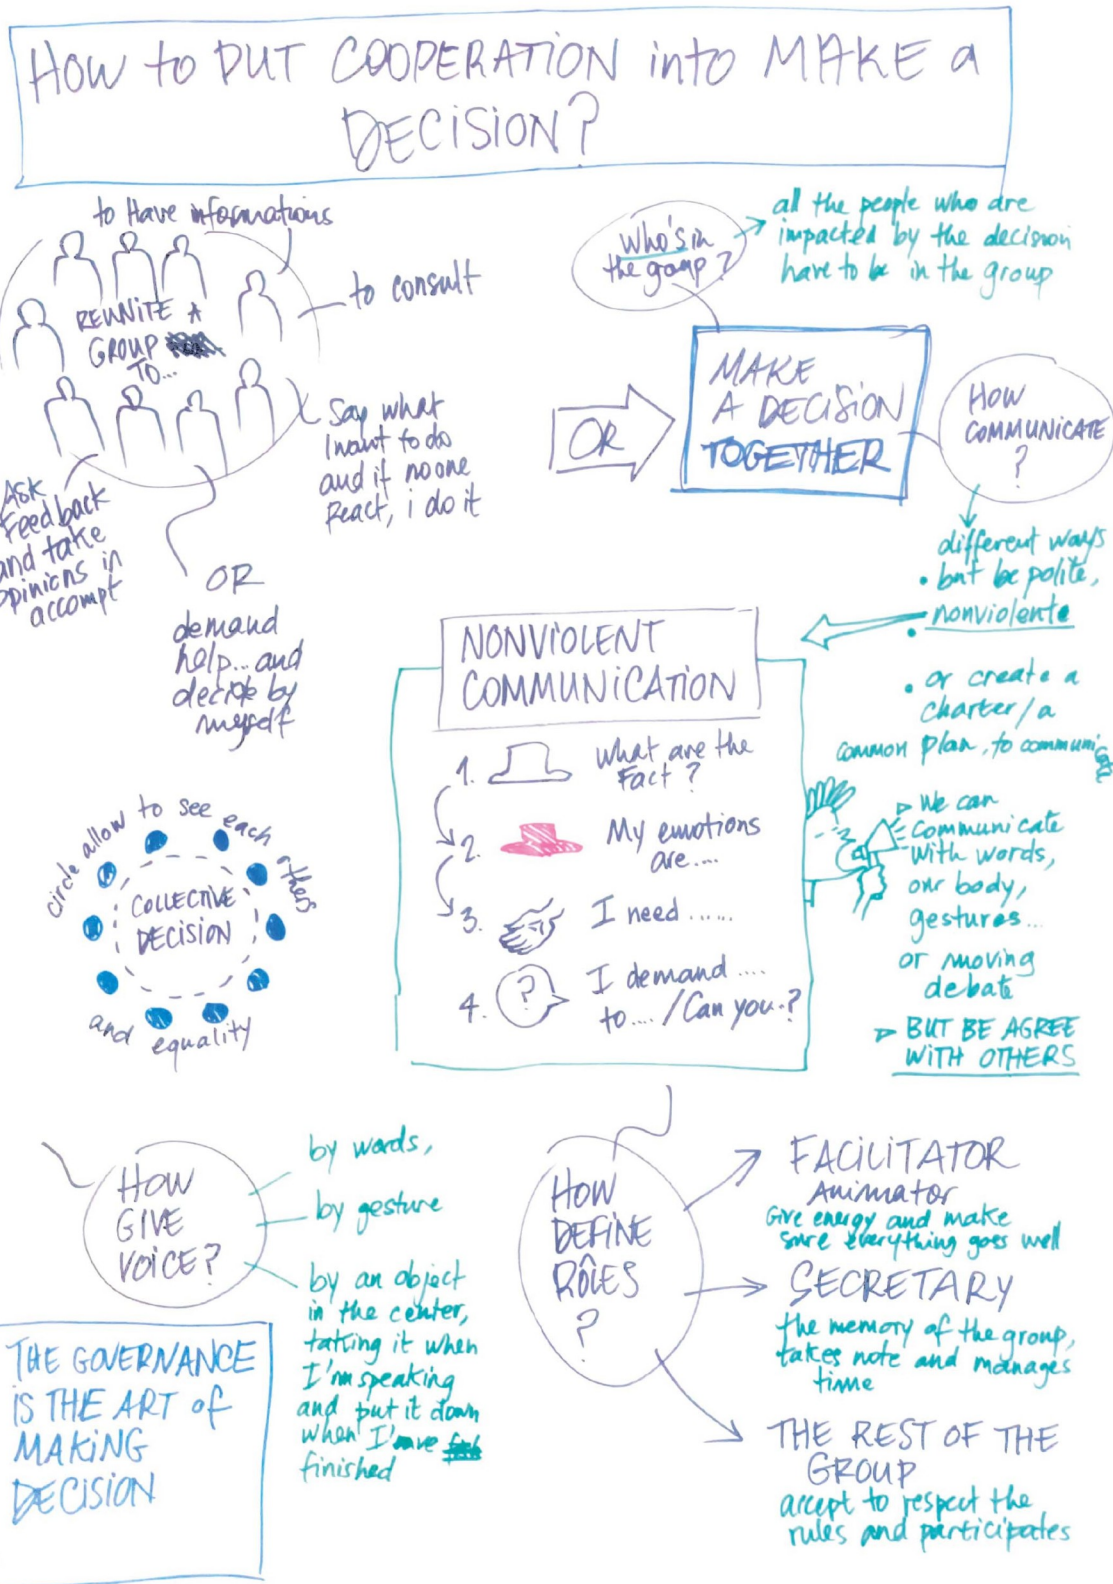 HOW to PUT COOPERATION into MAKE a
DECISION?
to Have informations
REUNITE A
GROUP
TO...
to consult
Say what
I want to do
and if no one
React, i do it
Ask
Feedback
and take
opinions in
accompt
OR
demand
help... and
decide by
myself
who's in
the group?
all the people who are
impacted by the decision
have to be in the group
OR
MAKE
A DECISION
TOGETHER
HOW
COMMUNICATE
?
different ways
• but be polite,
• nonviolente
• or create a
charter/a
common plan, to communicate
NONVIOLENT
COMMUNICATION
1. What are the
Fact?
2. My emotions
are....
3. I need ......
4. ? I demand ....
to.... /Can you..?
We can
communicate
with words,
our body,
gestures...
or moving
debate
BUT BE AGREE
WITH OTHERS
circle allow to see each others
COLLECTIVE
DECISION
and equality
HOW
GIVE
VOICE?
by words,
by gesture
by an object
in the center,
taking it when
I'm speaking
and put it down
when I've
finished
THE GOVERNANCE
IS THE ART of
MAKING
DECISION
HOW
DEFINE
RÔLES
?
FACILITATOR
Animator
Give energy and make
sure everything goes well
SECRETARY
the memory of the group,
takes note and manages
time
THE REST OF THE
GROUP
accept to respect the
rules and participates